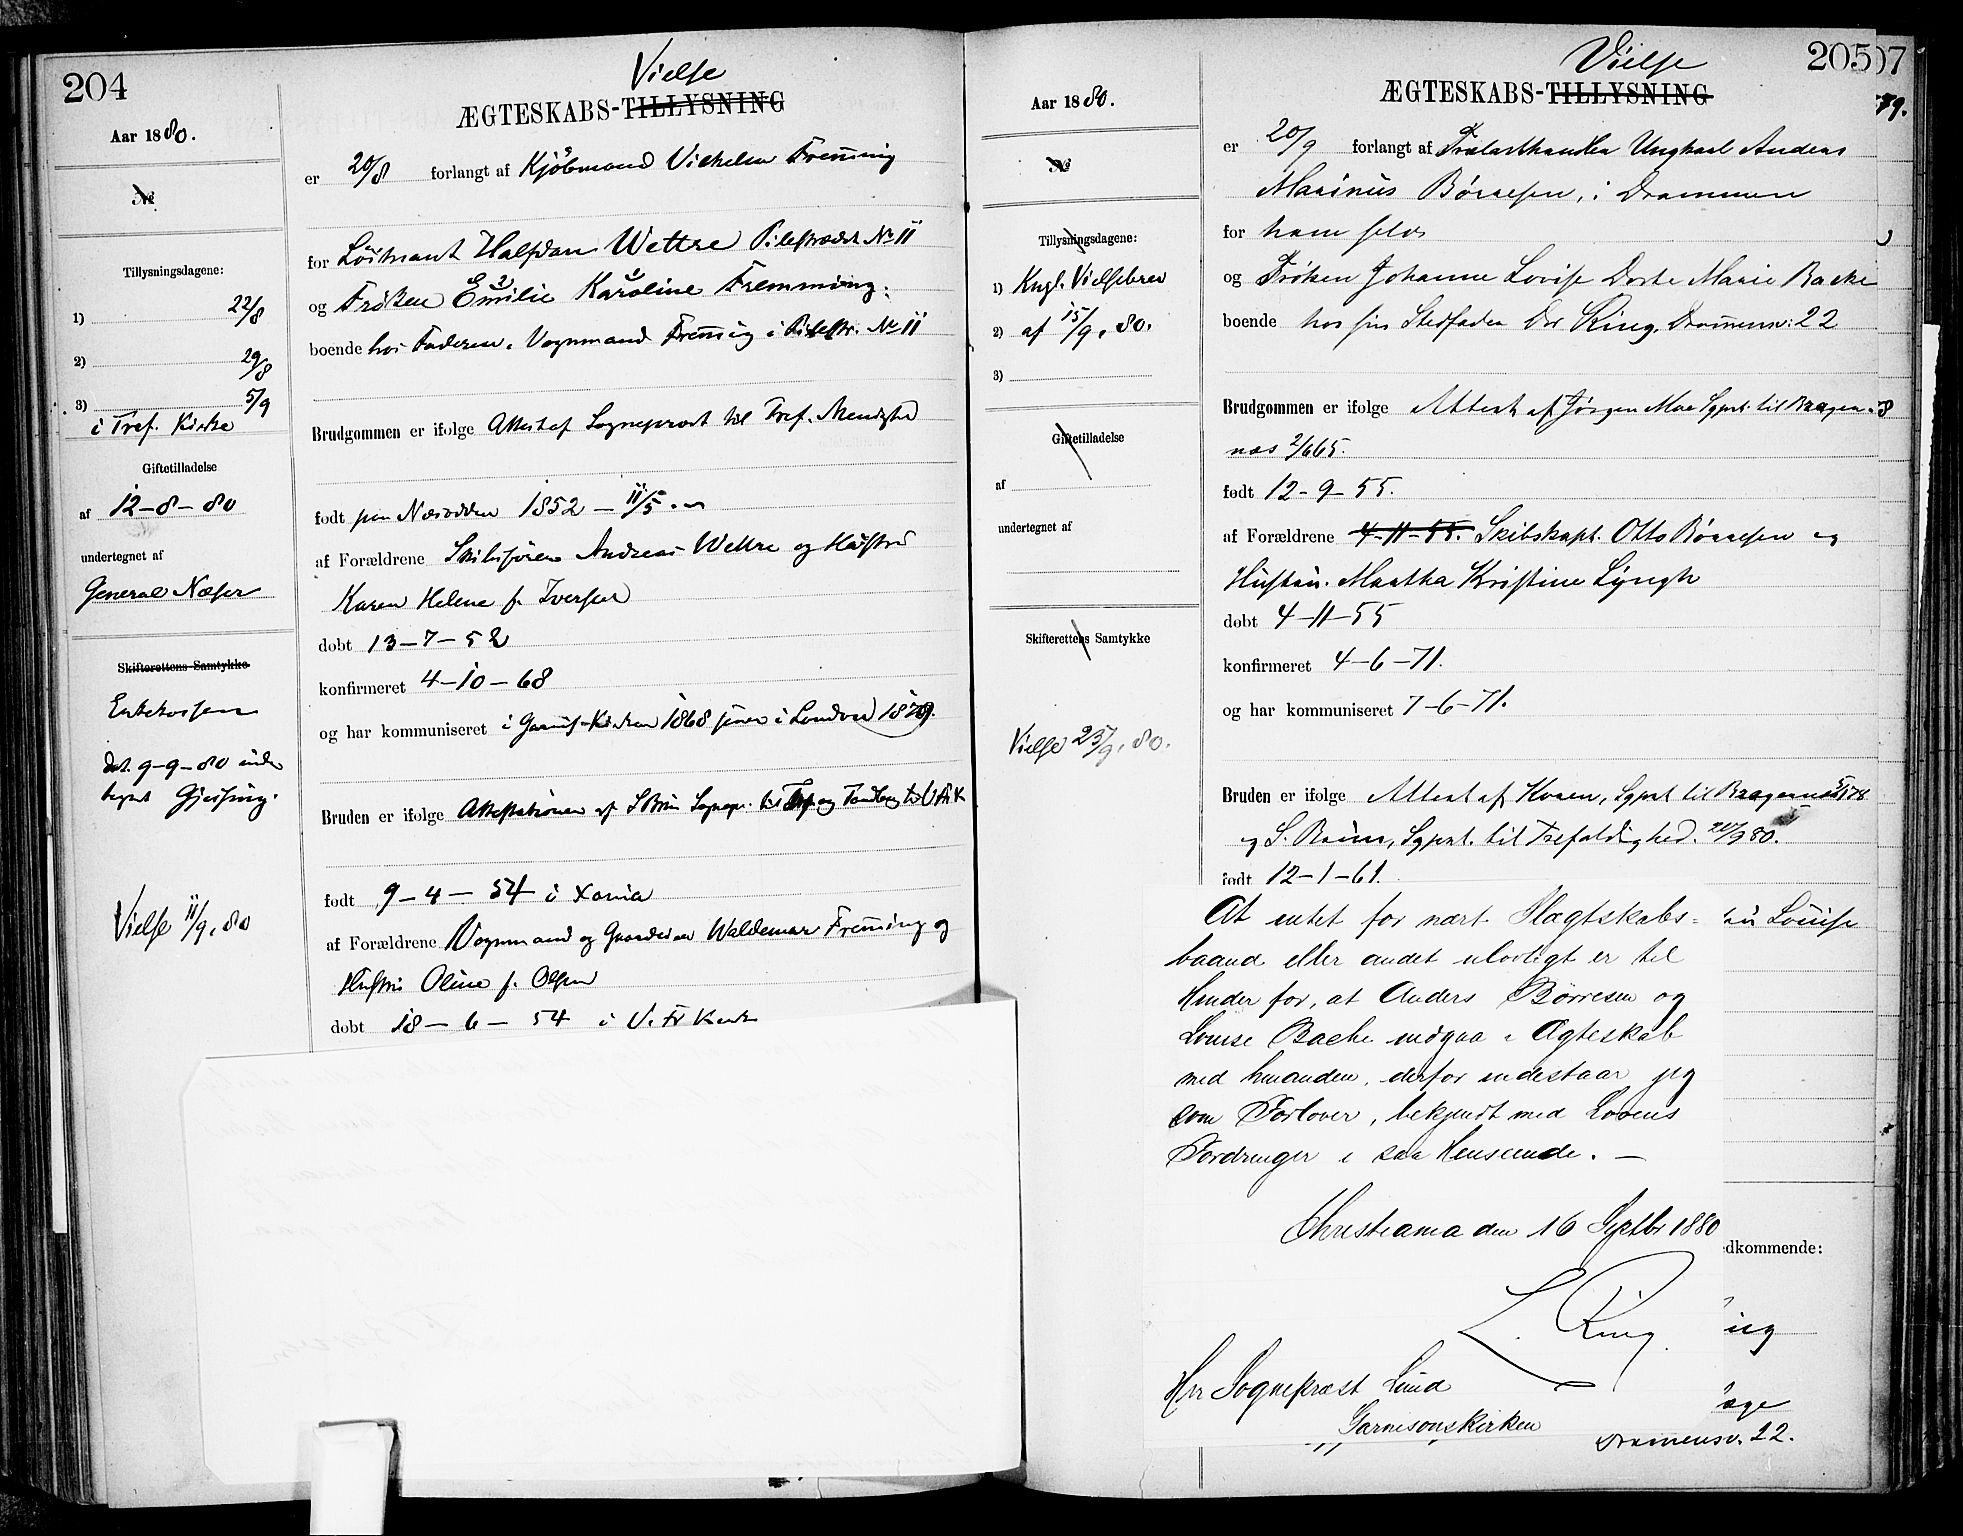 204
Vielse
ÆGTESKABS-TILLYSNING
Aar 1880.
No
Tillysningsdagene:
1) 22/8
2) 29/8
3) 5/9
i Tref. Kirke
Giftetilladelse
af 12-8-80
undertegnet af
General Næser
Skifterettens Samtykke
dat. 9-9-80 under
tegnet
Vielse 11/9.80
er 20/8 forlangt af Kjöbmand Vilhelm Fremming
for Löitnant Halfdan Wettre Pilestrædet No 11
og Fröken Emilie Karoline Fremming
boende hos Faderen, Vognmand Fremming i Pilestr. No 11
Brudgommen er ifølge Attest af Sogneprest til Tref. Menighed
født paa Næsodden 1852 - 11/5
af Forældrene Andreas Wettre og Hustru
Karen Helene f. Iversen
døbt 13-7-52
konfirmeret 4-10-68
og har kommuniseret i Garnis-Kirken 1868 senere i London 1879.
Bruden er ifølge Attestationer af
født 9-4-54 i Xania
af Forældrene Vognmand og Gaardeier Waldemar Fremming og
Hustru Oline f. Olsen
døbt 18-6-54 i V. Fr Kirke
205
07
Vielse
ÆGTESKABS-TILLYSNING
79.
Aar 1880.
No
Tillysningsdagene:
1) Kngl. Vielsebrev
2) af 15/9.80.
3)
Giftetilladelse
af
undertegnet af
Skifterettens Samtykke
Vielse 25/9.80.
er 20/9 forlangt af Trælasthandler Ungkarl Anders
Marinus Børresen, i Drammen
for ham selv
og Frøken Johanne Lovise Dorte Marie Bache
boende hos sin Stedfader Dr Ring, Drammensv: 22
Brudgommen er ifølge Attest af Jørgen Moe Sgprst. til Bragernæs
2/6 65.
født 12-9-55.
af Forældrene 4-11-55. Skibskapt. Otto Børresen og
Hustru. Martha Kristine Lyngh
døbt 4-11-55
konfirmeret 4-6-71.
og har kommuniseret 7-6-71.
Bruden er ifølge Attest af Hvoen, Sgprst til Bragernæs
og S. Bruun, Sgprst. til Trefoldighed. 20/9 80.
født 12-1-61.
Louise
At intet for nært Slægtskabs-
baand eller andet ulovligt er til
Hinder for, at Anders Børresen og
Louise Bache indgaa i Ægteskab
med hinanden, derfor indestaar jeg
som Forlover, bekjendt med Lovens
Fordringer i saa Henseende. —
Christiania den 16 Septbr 1880
L. Ring
Hrr Sognepræst Lund
Garnisonskirken
dkommende:
ing
æge
Dramensv. 22.